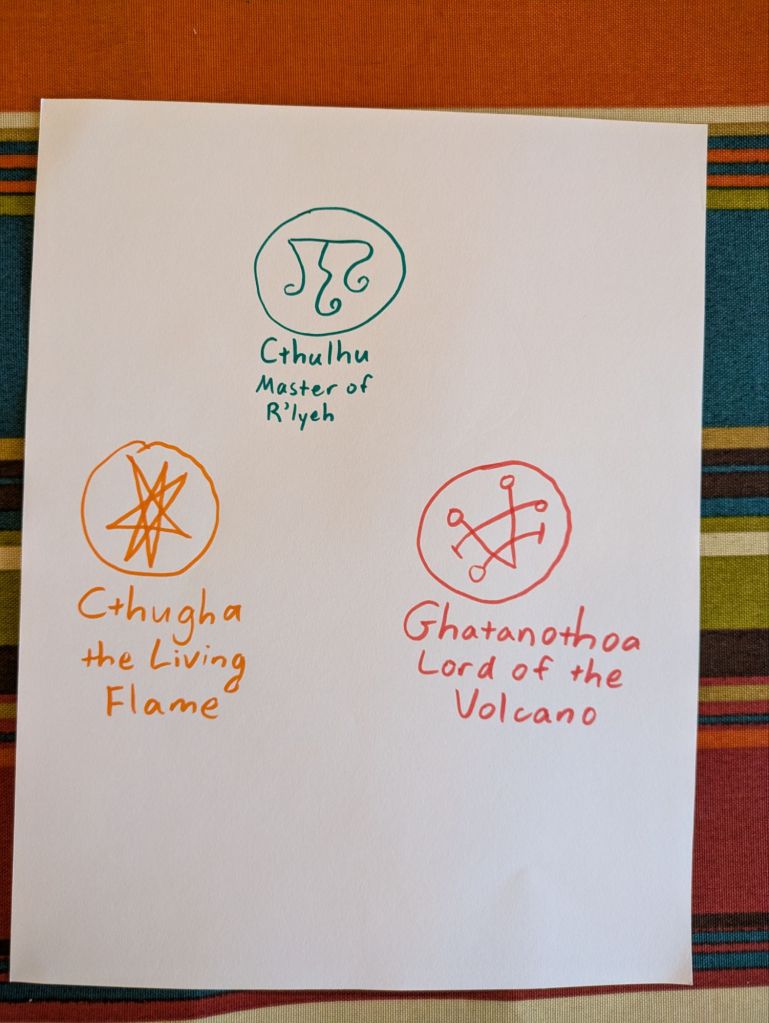 Cthulhu
Master of
R'lyeh
Cthugha
the Living
Flame
Ghatanothoa
Lord of the
Volcano